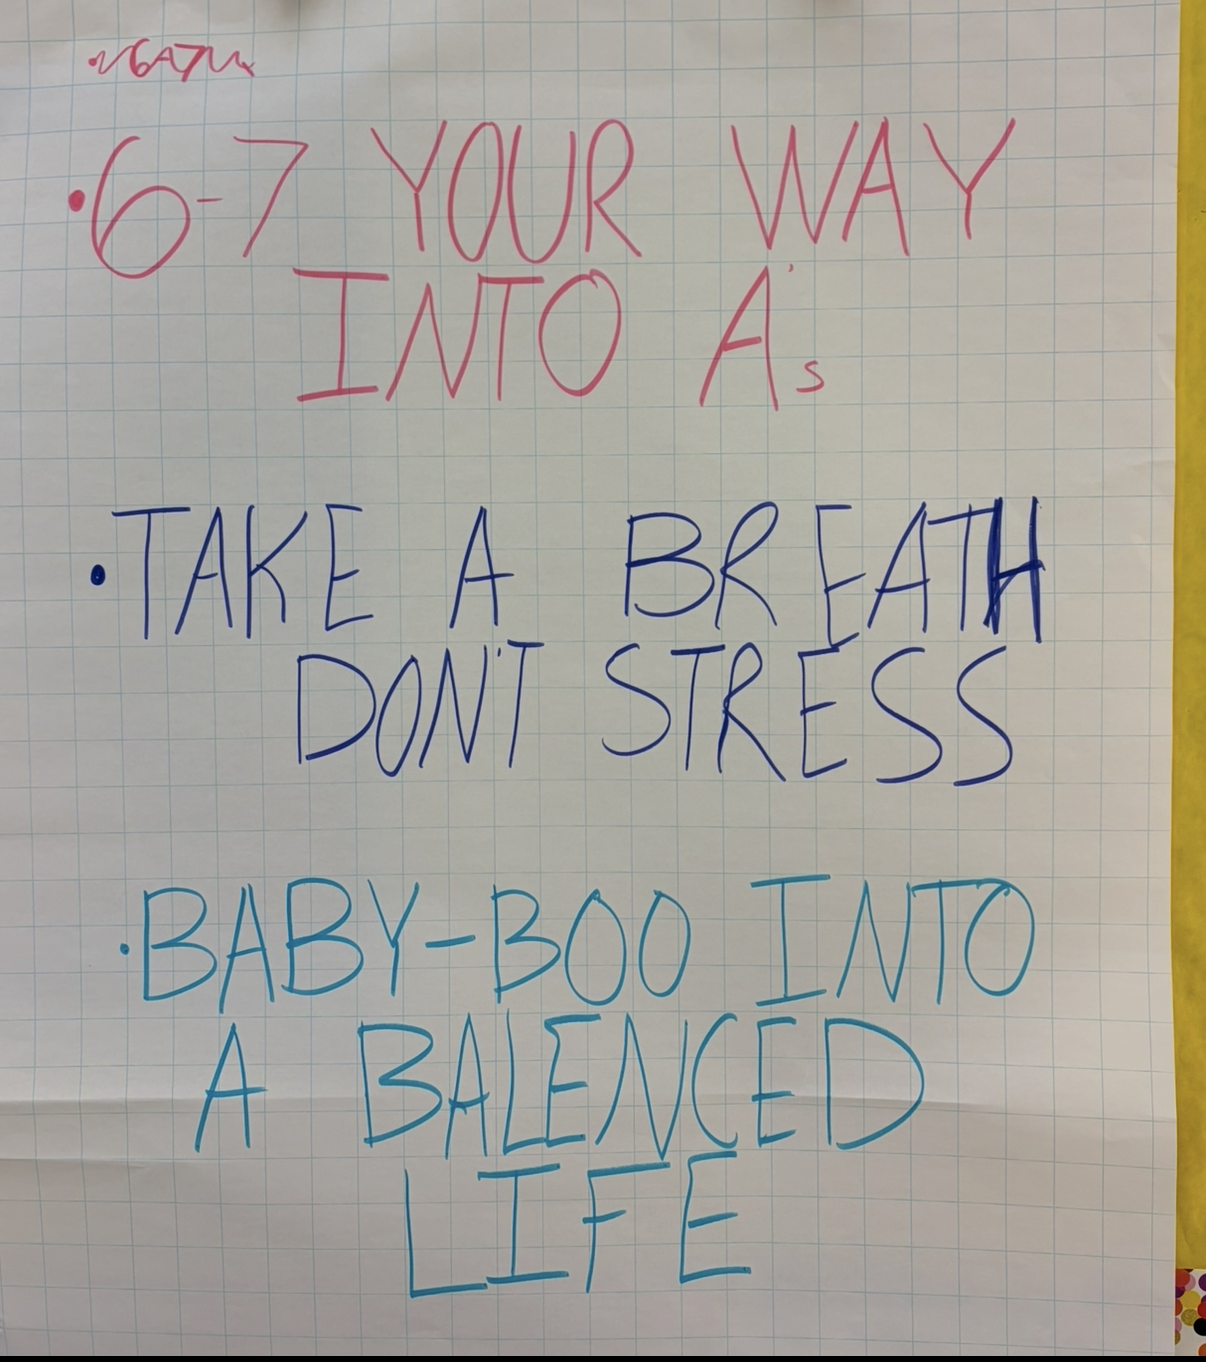 ·6-7 YOUR WAY
INTO A's
·TAKE A BREATH
DON'T STRESS
·BABY-BOO INTO
A BALENCED
LIFE